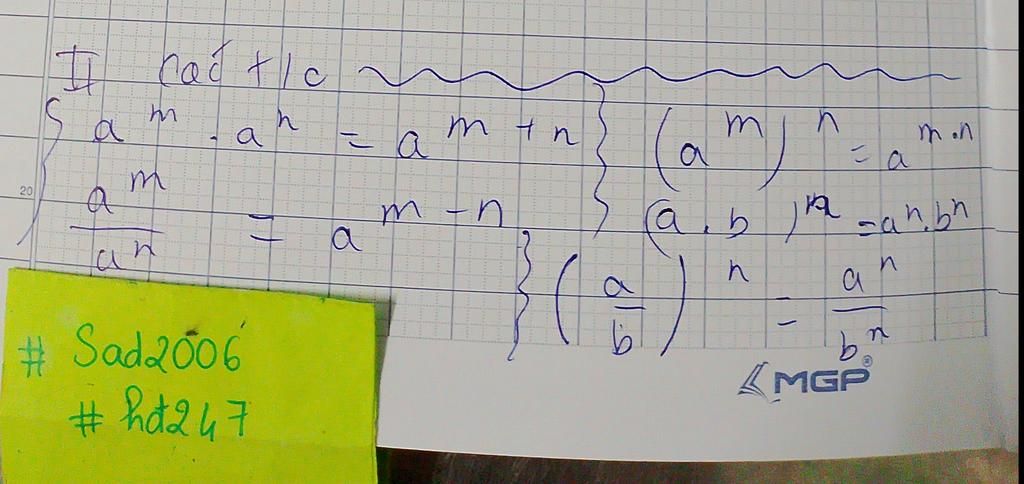 II các t/c
a^m . a^n = a^{m + n}
\frac{a^m}{a^n} = a^{m - n}
(a^m)^n = a^{m.n}
(a.b)^n = a^n.b^n
(\frac{a}{b})^n = \frac{a^n}{b^n}
20
# Sad2006
# hdt247
MGP®